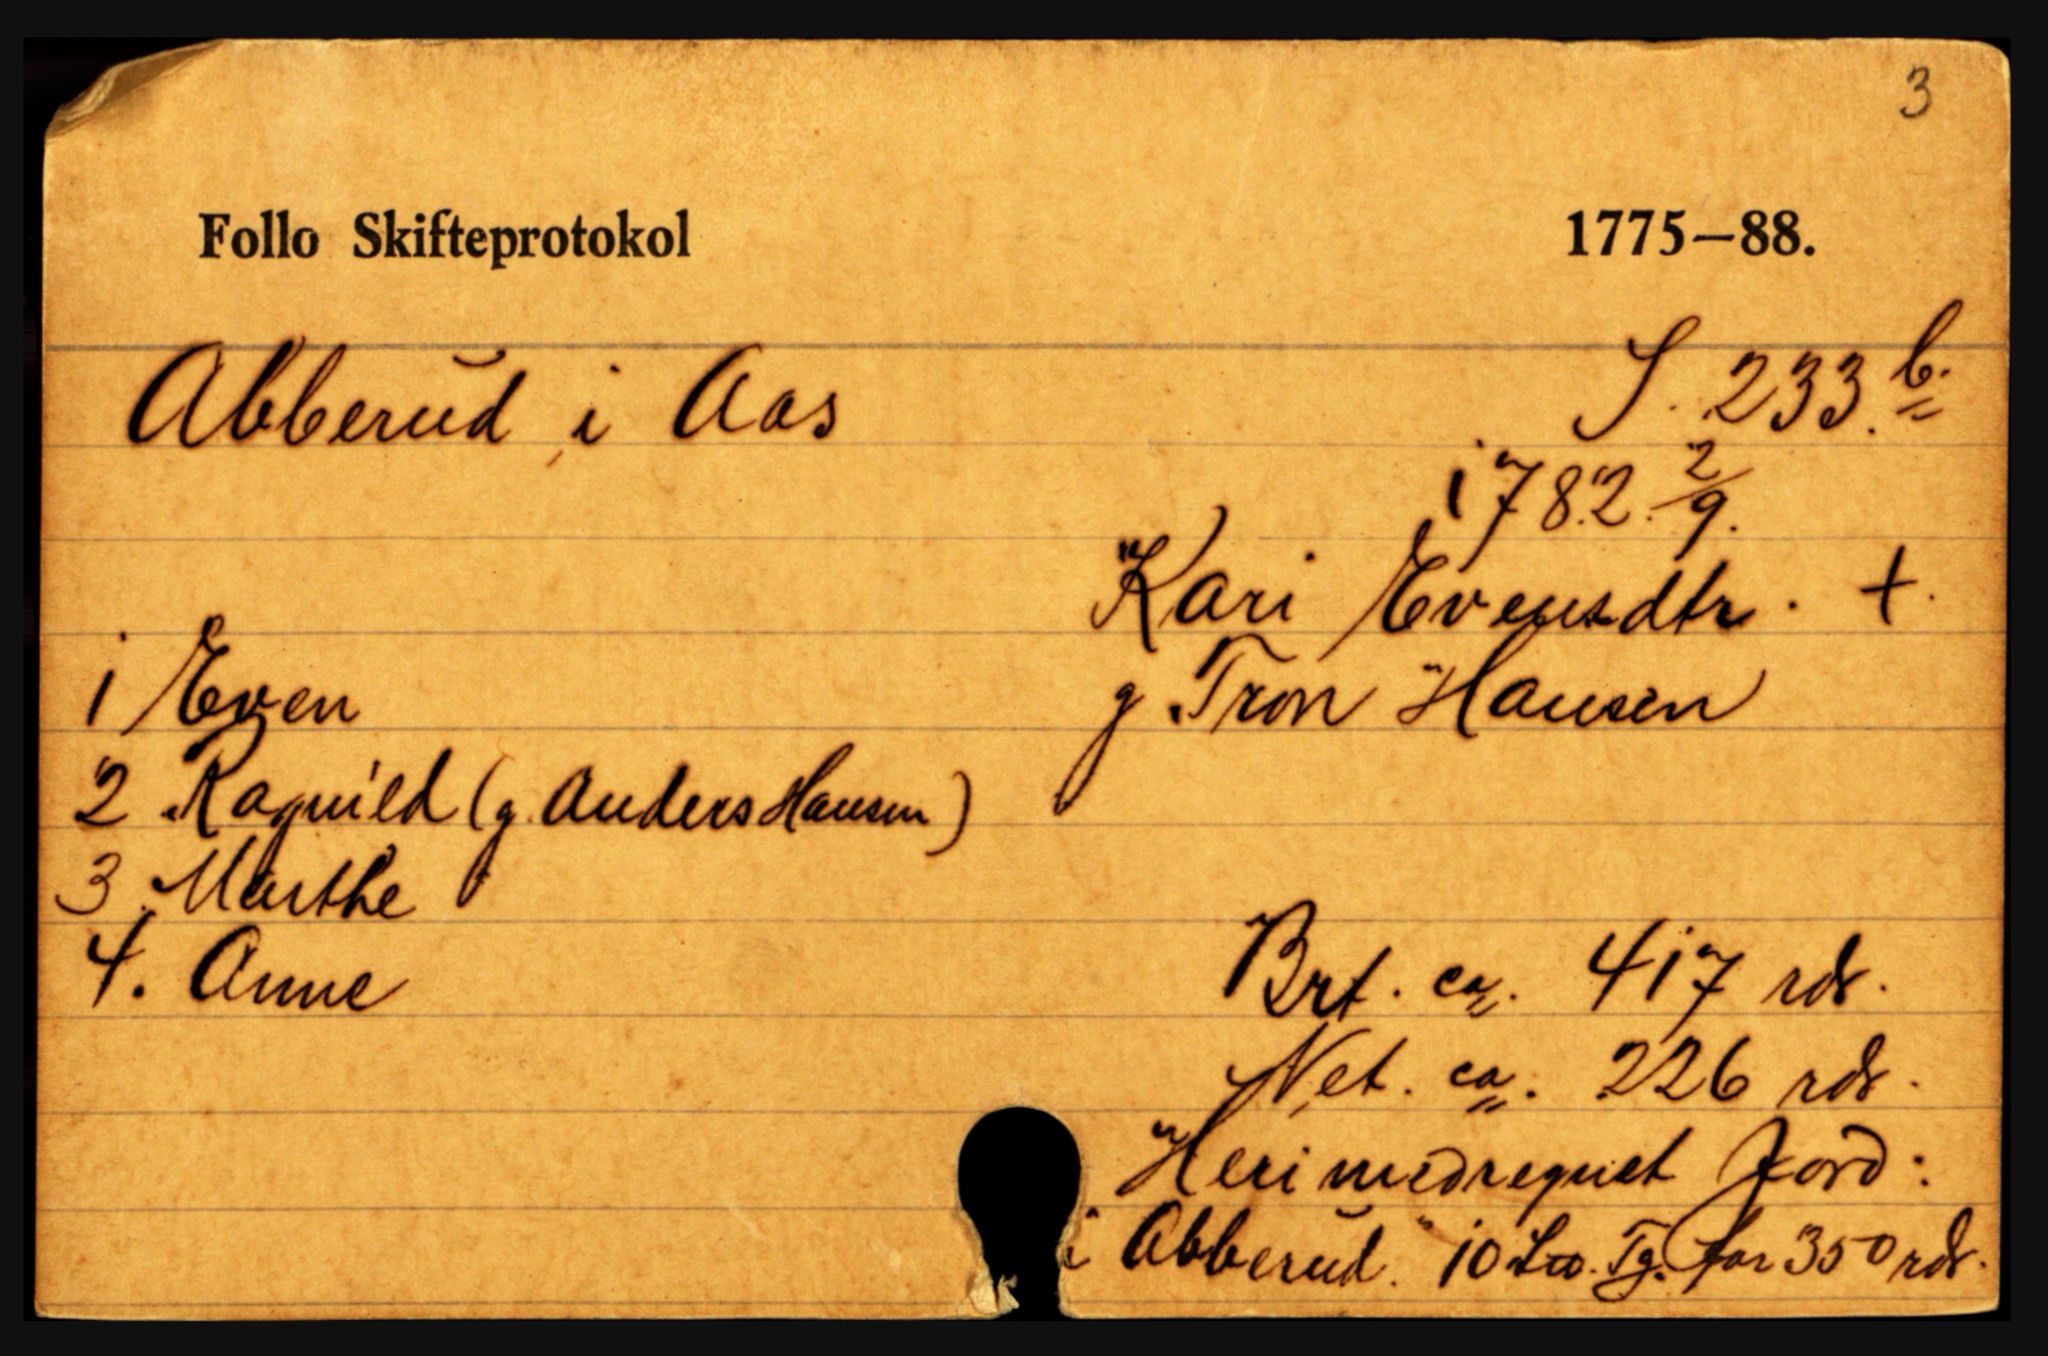 3
Follo Skifteprotokol 1775–88.
Abberud i Aas S. 233. b.
1782. 2/9.
Kari Evensdtr. +.
1 Even g. Tron Hansen
2 Ragnild (g. Anders Hansen)
3. Marthe
4. Anne Brt. ca. 417 rdr.
Net. ca. 226 rdr.
Heri medregnet Jord:
i Abberud. 10 Lw. Tg. for 350 rdr.